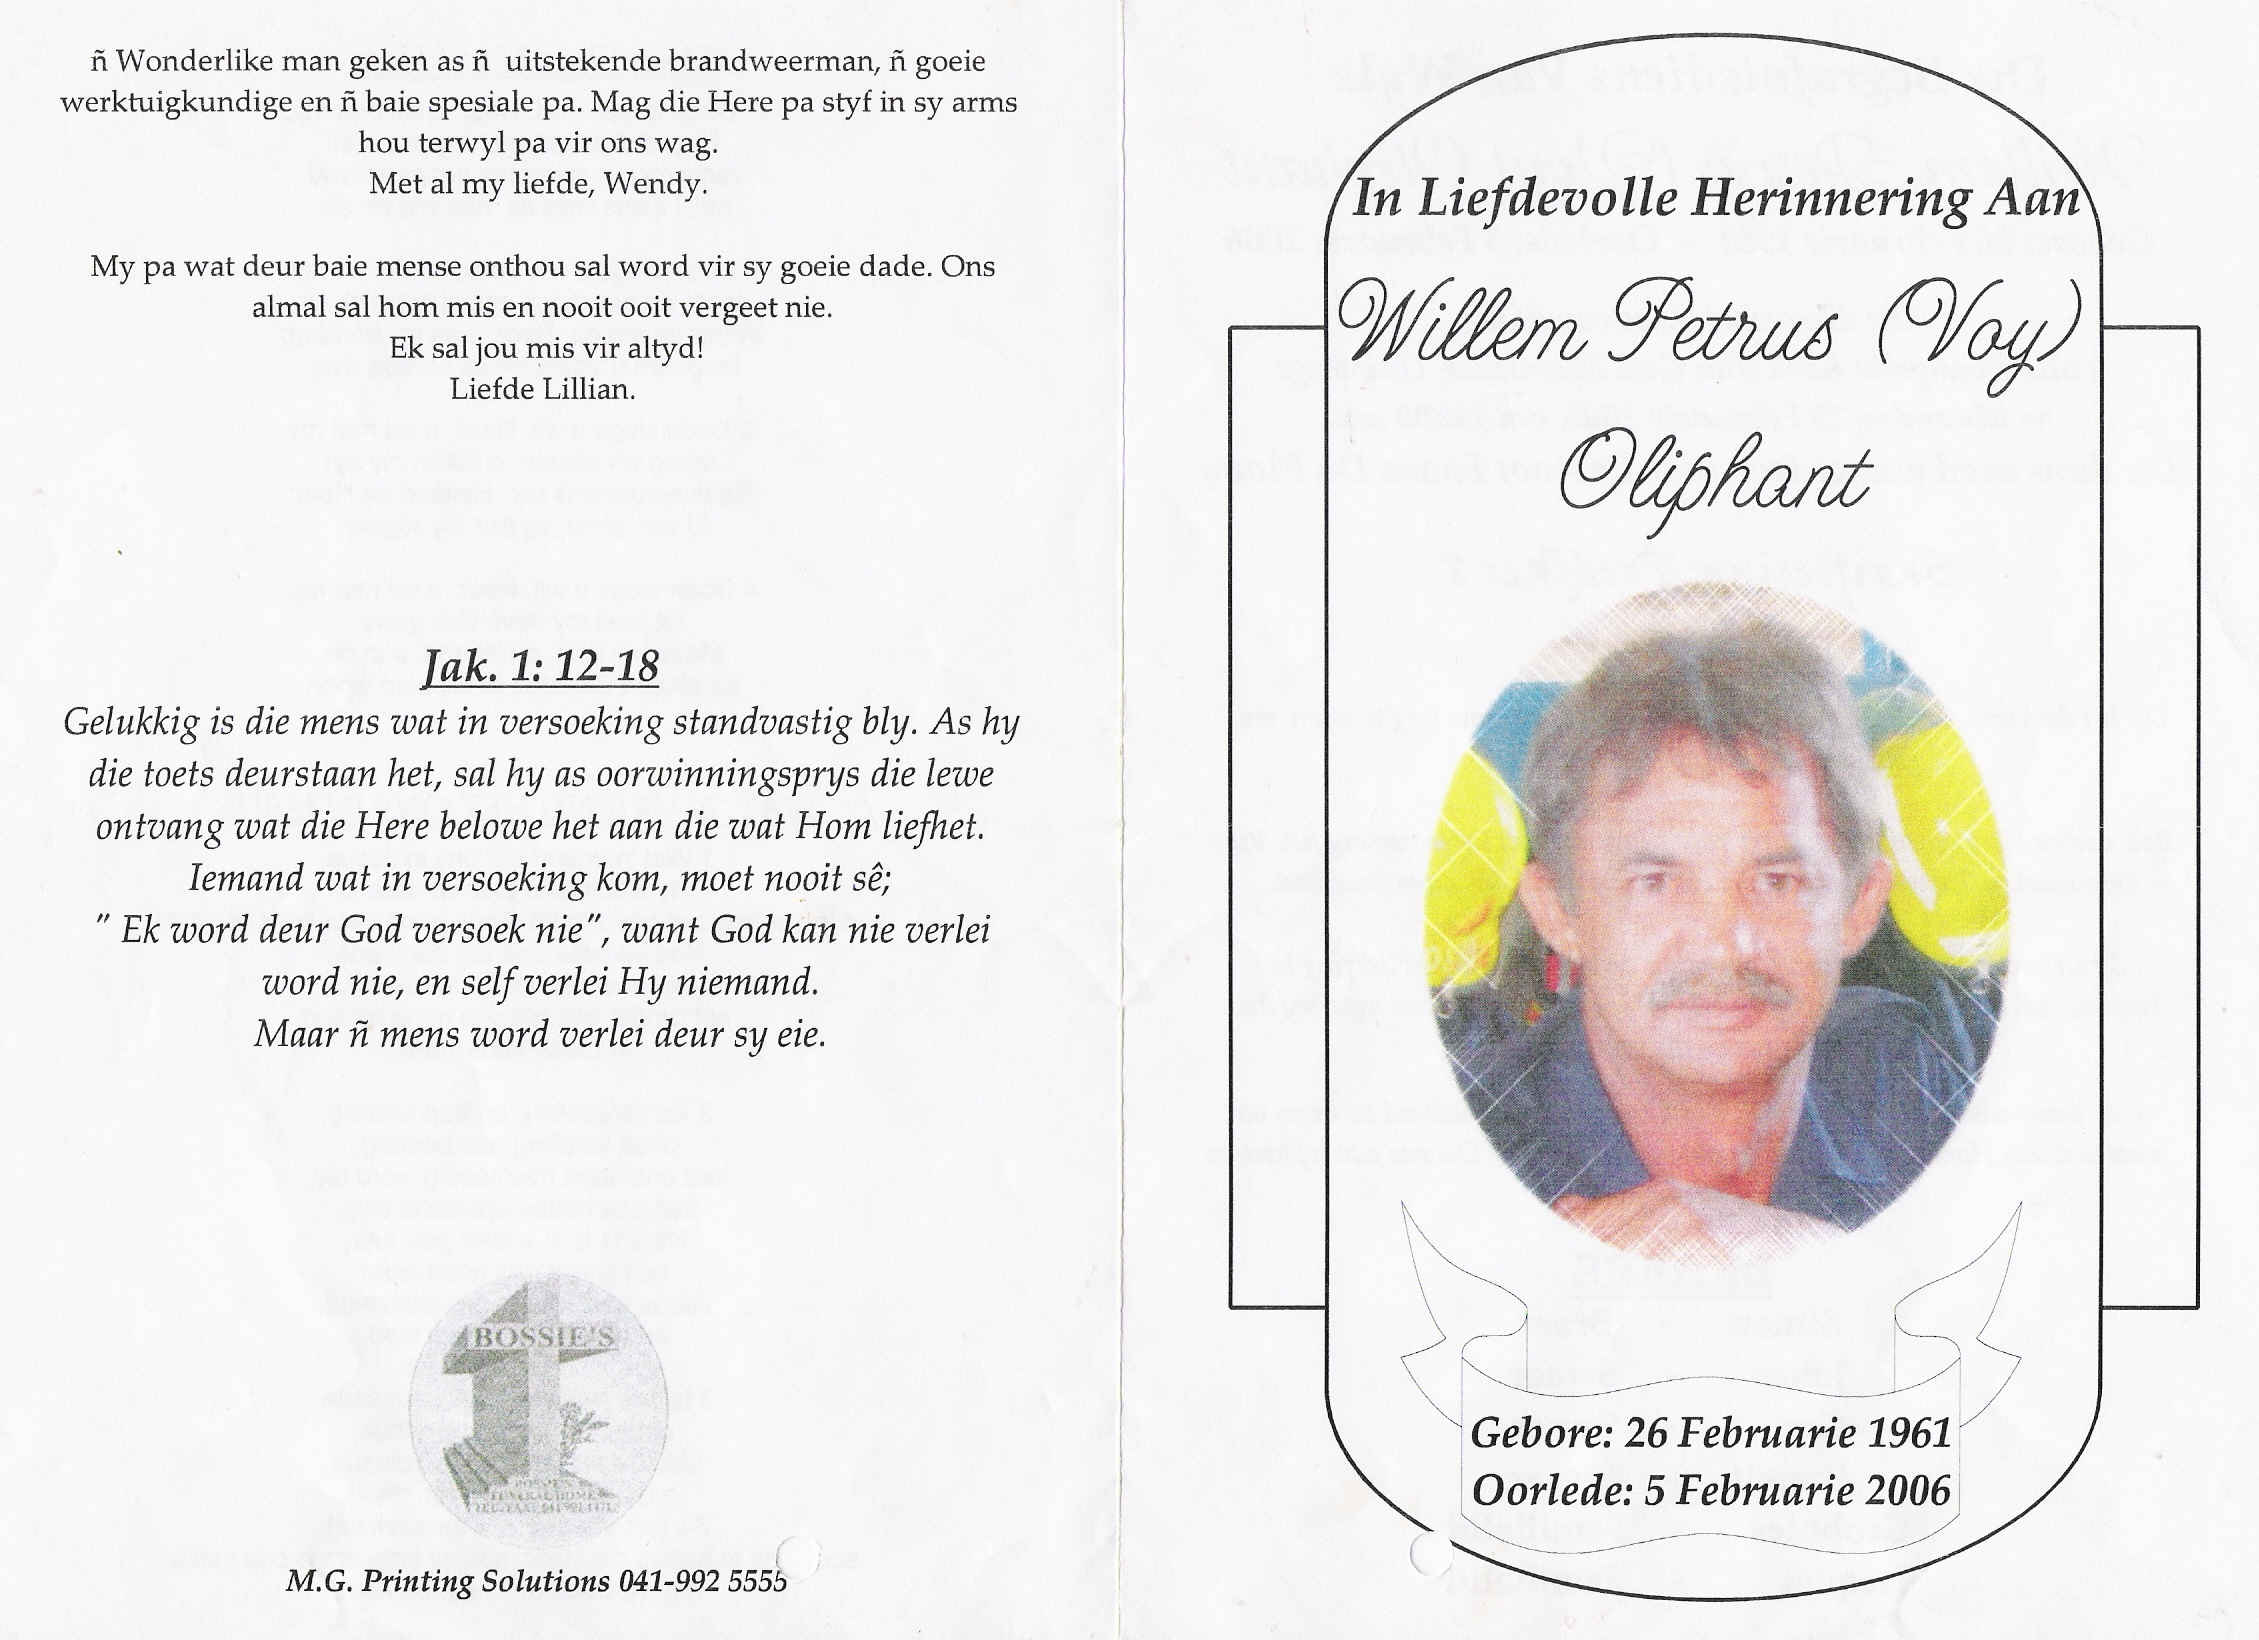 ñ Wonderlike man geken as ñ uitstekende brandweerman, ñ goeie
werktuigkundige en ñ baie spesiale pa. Mag die Here pa styf in sy arms
hou terwyl pa vir ons wag.
Met al my liefde, Wendy.
My pa wat deur baie mense onthou sal word vir sy goeie dade. Ons
almal sal hom mis en nooit ooit vergeet nie.
Ek sal jou mis vir altyd!
Liefde Lillian.
Jak. 1: 12-18
Gelukkig is die mens wat in versoeking standvastig bly. As hy
die toets deurstaan het, sal hy as oorwinningsprys die lewe
ontvang wat die Here belowe het aan die wat Hom liefhet.
Iemand wat in versoeking kom, moet nooit sê;
" Ek word deur God versoek nie", want God kan nie verlei
word nie, en self verlei Hy niemand.
Maar ñ mens word verlei deur sy eie.
BOSSIE'S
BOSSIE'S
FUNERAL HOME
M.G. Printing Solutions 041-992 5555
In Liefdevolle Herinnering Aan
Willem Petrus (Voy)
Oliphant
Gebore: 26 Februarie 1961
Oorlede: 5 Februarie 2006